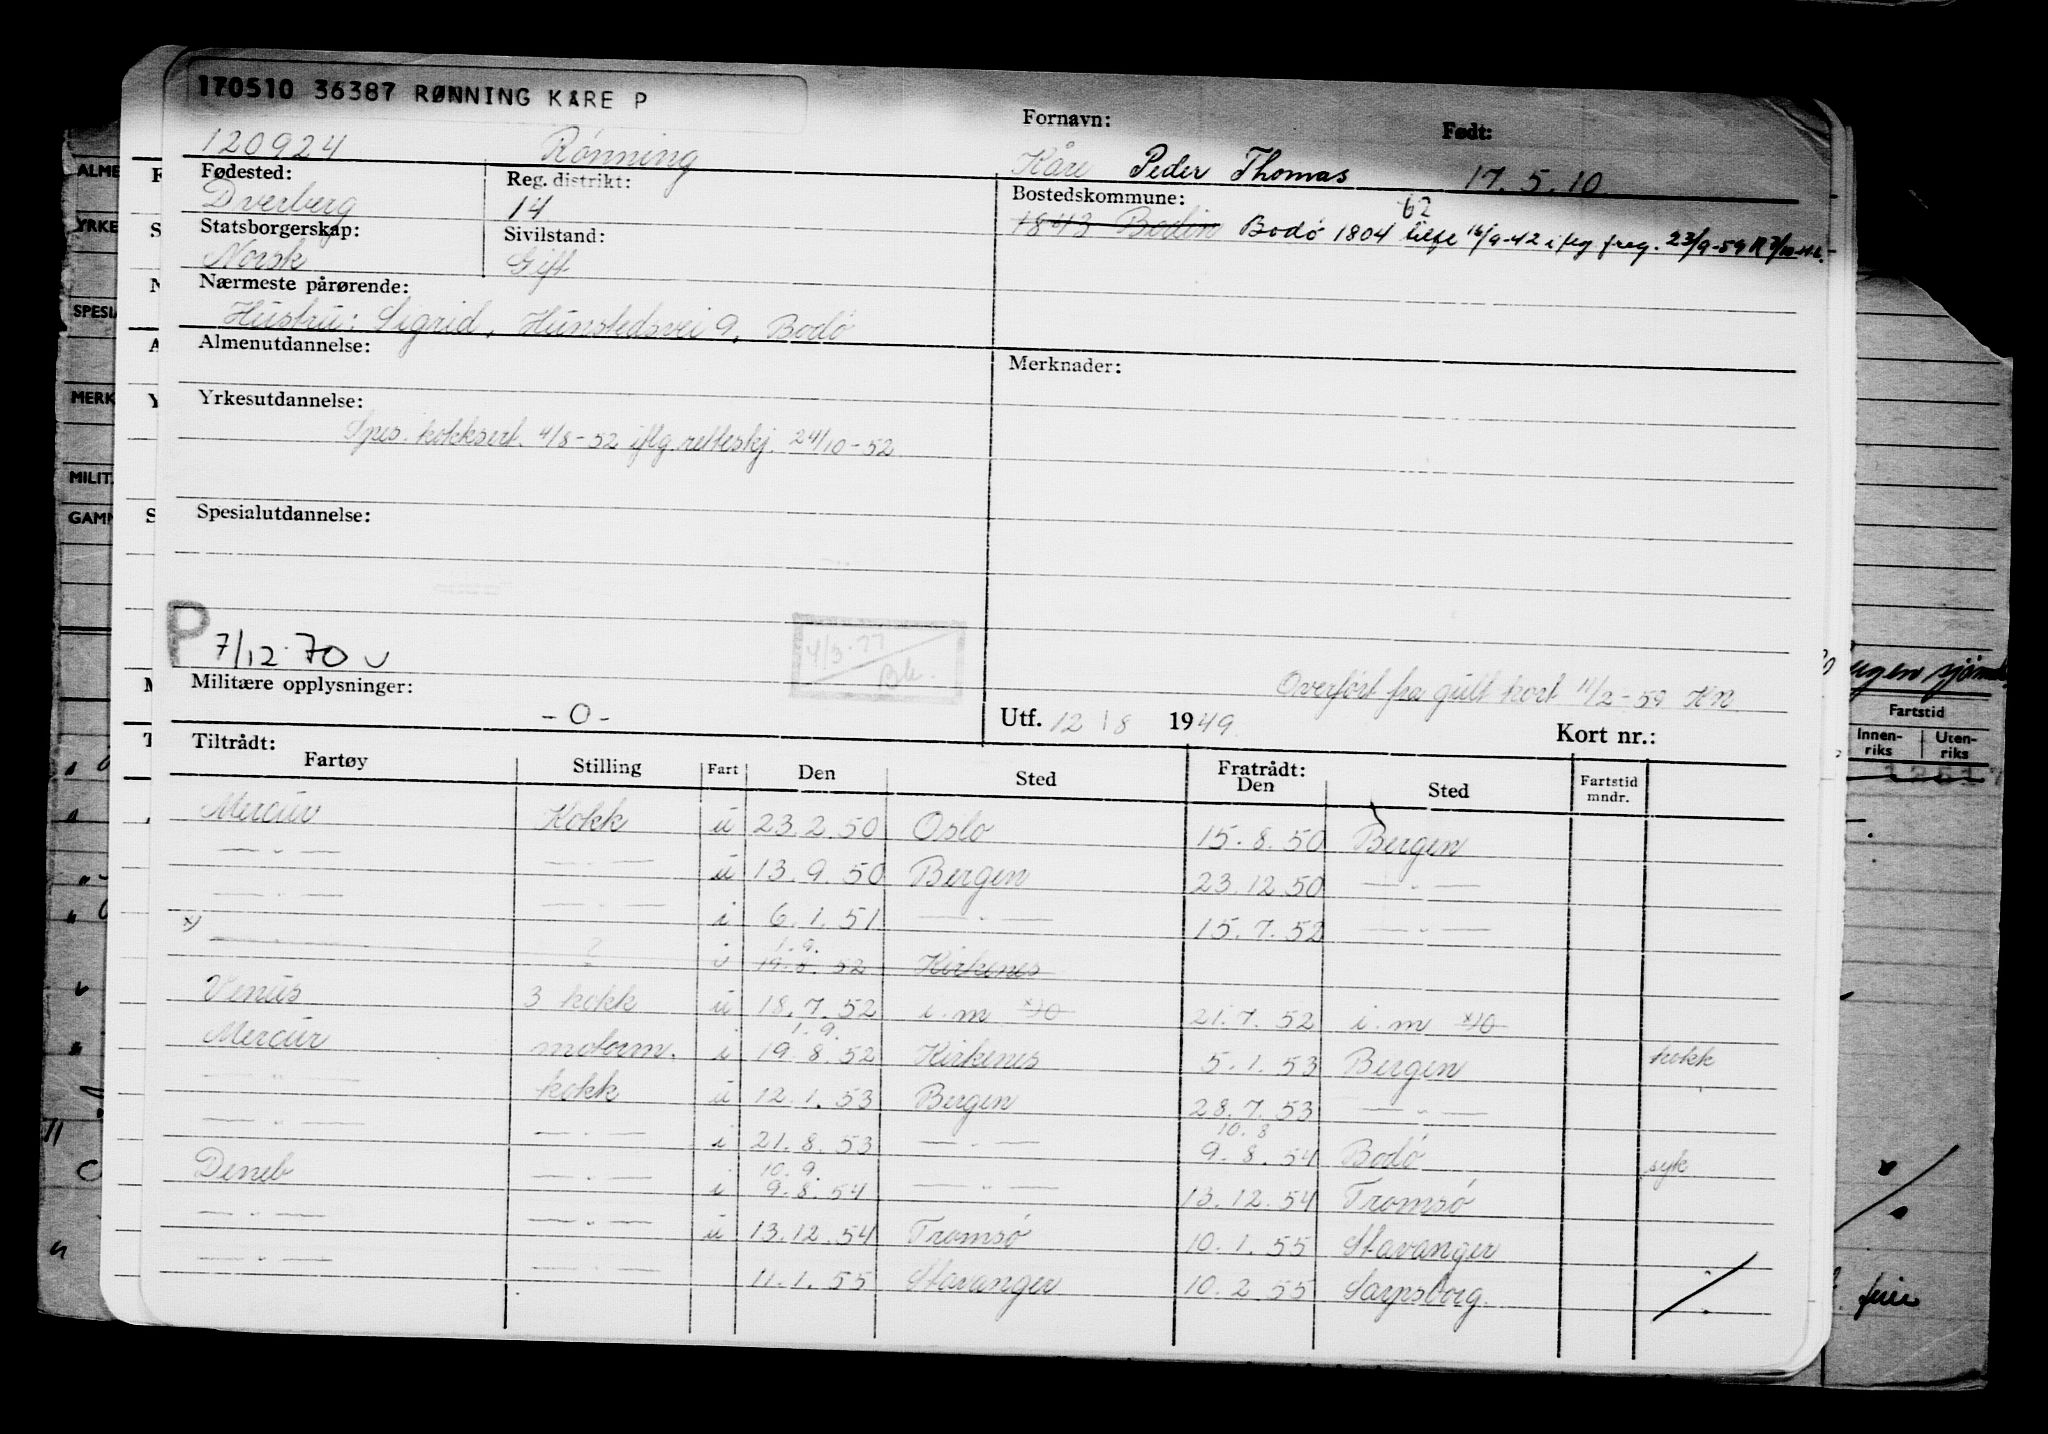 170510 36387 RØNNING KÅRE P
Fornavn: Født:
120924 Rønning Kåre Peder Thomas 17.5.10
Fødested: Reg. distrikt: Bostedskommune:
Dverberg 14 1843 Bodin Bodø 1804 62 16/9-42 23/9-59
Statsborgerskap: Sivilstand:
Norsk Gift
Nærmeste pårørende:
Hustru: Sigrid, Hunstedsvei 9, Bodø
Almenutdannelse: Merknader:
Yrkesutdannelse:
Spes. kokksert. 4/8-52 iflg. retteskj. 24/10-52
Spesialutdannelse:
P 7/12-70
4/3-77
Militære opplysninger: Overført fra gult kort 11/2-59 KN.
-0- Utf. 12/8 1949. Kort nr.:
Tiltrådt: Fratrådt:
Fartøy Stilling Fart Den Sted Den Sted Fartstid mndr.
Mercur Kokk u 23.2.50 Oslo 15.8.50 Bergen
— " — — " — u 13.9.50 Bergen 23.12.50 — " —
— " — — " — i 6.1.51 — " — 15.7.52 — " —
x) — " — ? i 1.9. 19.8.52 Kirkenes
Venus 3 kokk u 18.7.52 i.m x)0 21.7.52 i.m x)0
Mercur motorm. i 1.9. 19.8.52 Kirkenes 5.1.53 Bergen kokk
— " — kokk u 12.1.53 Bergen 28.7.53 — " —
— " — — " — i 21.8.53 — " — 10.8 9.8.54 Bodø syk
Deneb — " — i 10.9. 9.8.54 — " — 13.12.54 Tromsø
— " — — " — u 13.12.54 Tromsø 10.1.55 Stavanger
— " — — " — 11.1.55 Stavanger 10.2.55 Sarpsborg.
ALME
YRKE
SPESI
MERK
MILIT
GAMM
Fartstid
Innenriks Utenriks